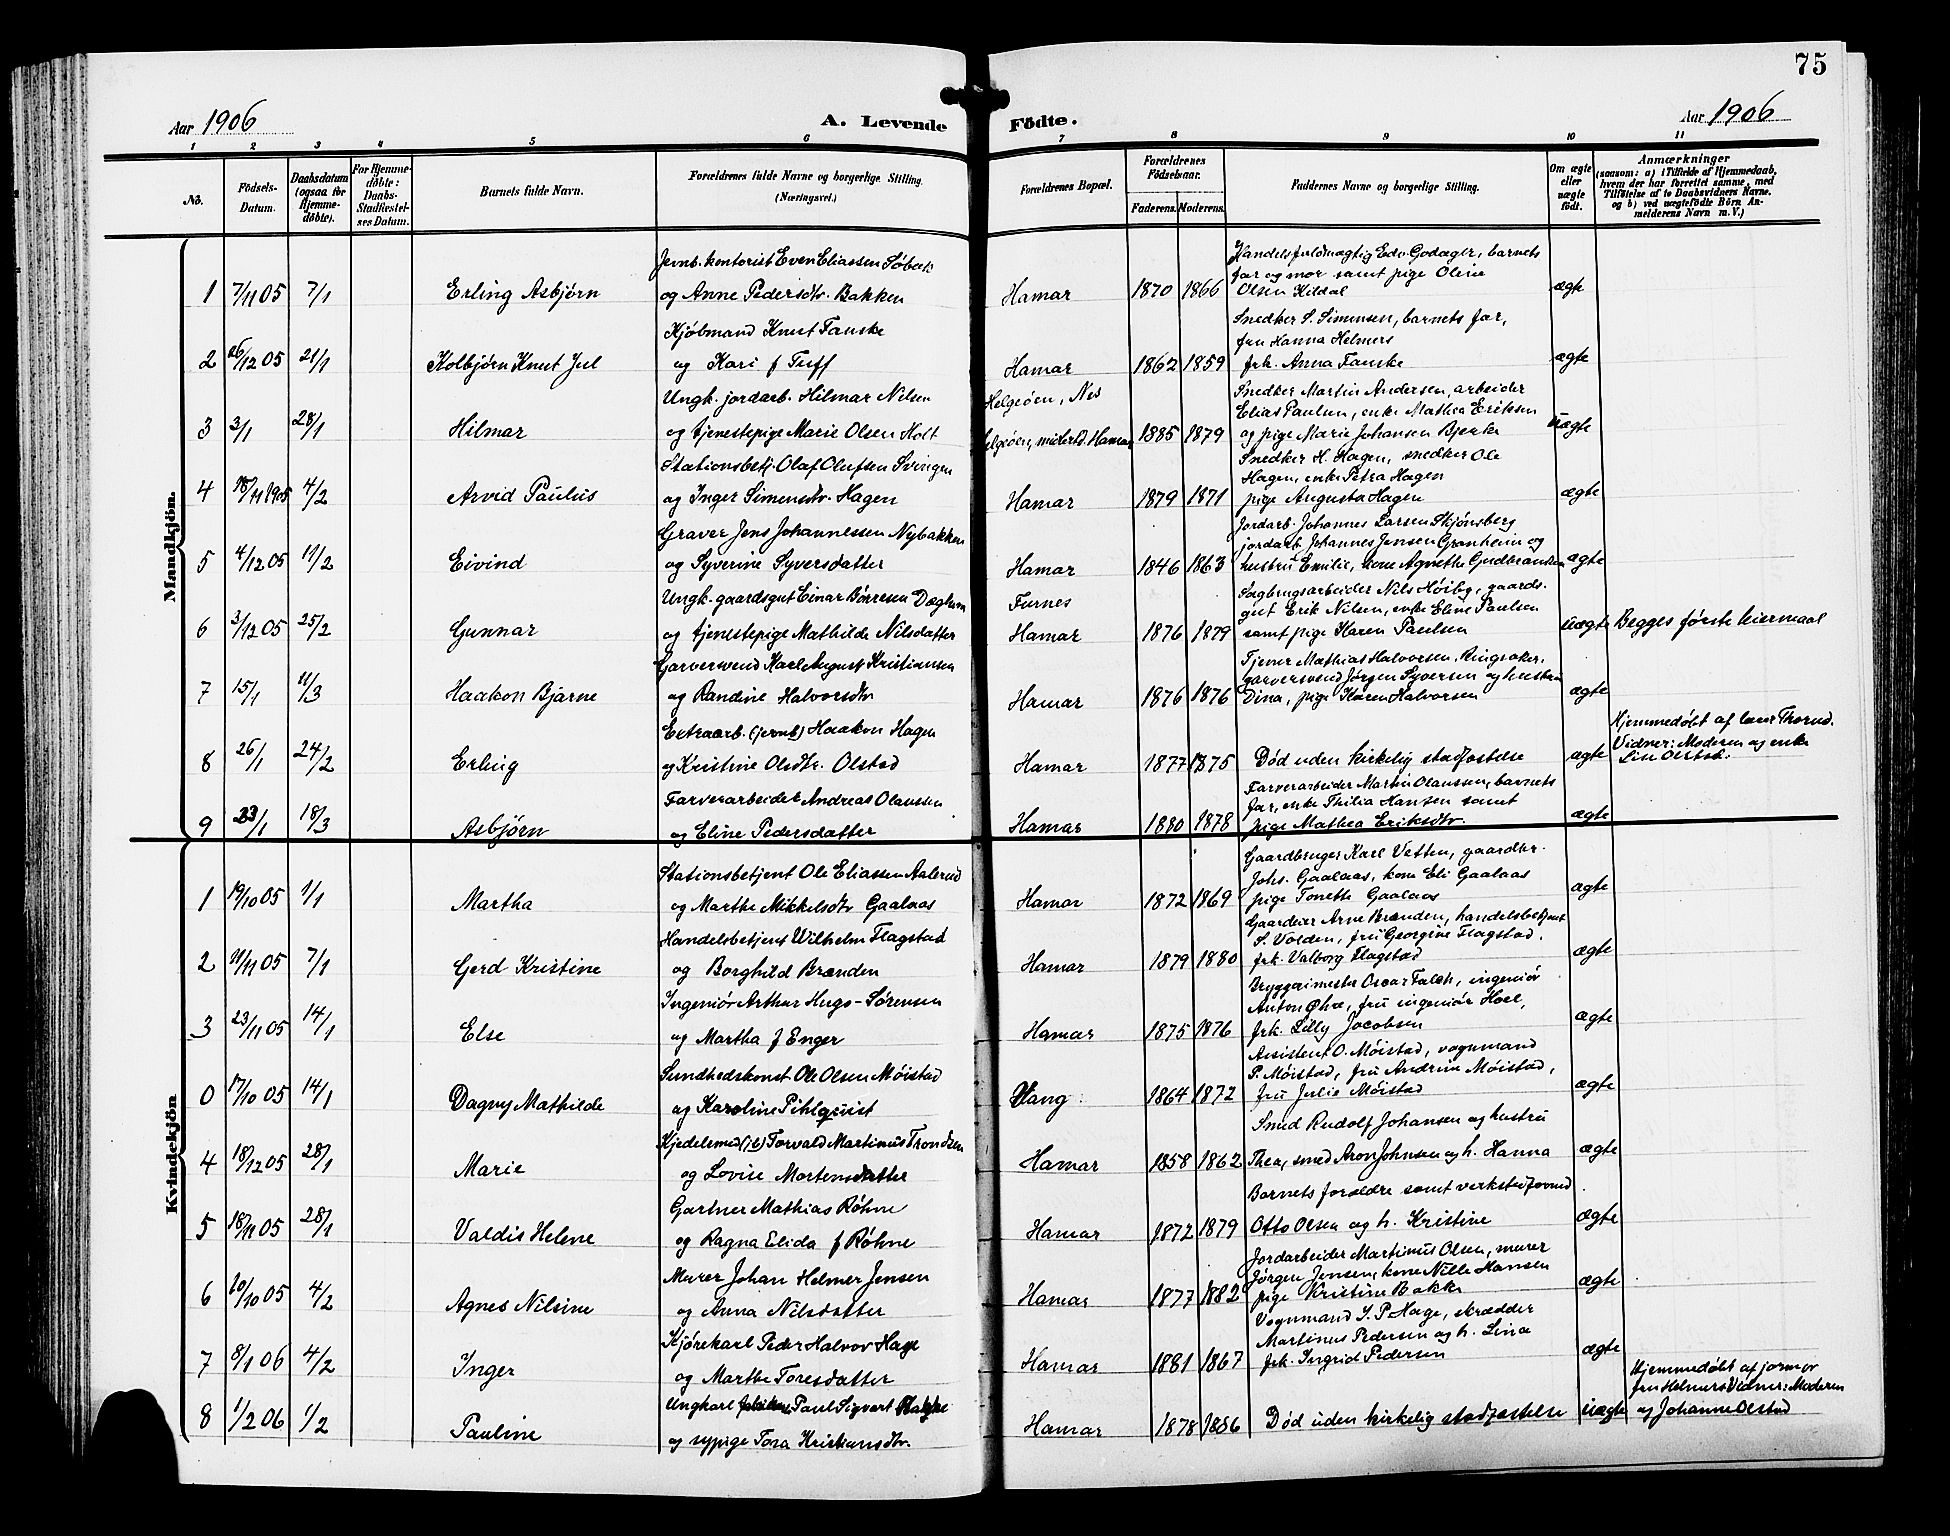 75
Aar 1906
A. Levende
Födte.
Aar 1906
1 2 3 4 5 6 7 8 9 10 11
No.
Födsels-
Datum.
Daabsdatum
(ogsaa for
Hjemme-
döbte).
For Hjemme-
döbte:
Daabs-
Stadfæstel-
ses Datum.
Barnets fulde Navn.
Forældrenes fulde Navne og borgerlige Stilling.
(Næringsvei.)
Forældrenes Bopæl.
Forældrenes
Födselsaar.
Faderens. Moderens.
Faddernes Navne og borgerlige Stilling.
Om ægte
eller
uægte
födt.
Anmærkninger
(saasom: a) i Tilfælde af Hjemmedaab,
hvem der har forrettet samme, med
Tilföielse af to Daabsvidners Navne,
og b) ved uægtefödte Börn An-
melderens Navn m. V.)
Mandkjön.
Jernb. kontorist Even Eliassen Søbak
1 7/11 05 7/1 Erling Asbjørn og Anne Pedersdtr. Bakken Hamar 1870 1866
Handelsfuldmægtig Edv. Godager, barnets
far og mor samt pige Oline
Olsen Kildal ægte
Kjøbmand Knut Fauske
2 26/12 05 21/1 Kolbjørn Knut Jul og Kari f Tuff Hamar 1862 1859
Snedker S. Simensen, barnets far,
fru Hanna Helmers
frk. Anna Fauske ægte
Ungk. jordarb. Hilmar Nilsen Helgeøen, Nes
3 3/1 28/1 Hilmar og tjenestepige Marie Olsen Holt Helgeøen, midlertd. Hamar 1885 1879
Snedker Martin Andersen, arbeider
Elias Paulsen, enke Mathea Eriksen
og pige Marie Johansen Bjerke uægte
Stationsbetj. Olaf Olufsen Svingen
4 18/11 1905 4/2 Arvid Paulus og Inger Simensdtr. Hagen Hamar 1879 1871
Snedker H. Hagen, snedker Ole
Hagen, enke Petra Hagen
pige Augusta Hagen ægte
Graver Jens Johannessen Nybakken
5 4/12 05 11/2 Eivind og Syverine Syversdatter Hamar 1846 1863
Jordarb. Johannes Larsen Skjønsberg
jordarb. Johannes Jensen Granheim og
hustru Emilie, kone Agnethe Gudbrandsen ægte
Ungk. gaardsgut Einar Børresen Dæghum Furnes
6 3/12 05 25/2 Gunnar og tjenestepige Mathilde Nilsdatter Hamar 1876 1879
Sagbrugsarbeider Nils Høiby, gaards-
gut Erik Nilsen, enke Eline Paulsen
samt pige Karen Paulsen uægte Begges første leiermaal
Garversvend Karl August Kristiansen
7 15/1 11/3 Haakon Bjarne og Randine Halvorsdtr Hamar 1876 1876
Tjener Mathias Halvorsen, Ringsaker,
garversvend Jørgen Syversen og hustru
Dina, pige Karen Halvorsen ægte
Extraarb. (jernb) Haakon Hagen
8 26/1 24/2 Erling og Kristine Olsdtr. Olstad Hamar 1877 1875 Død uden kirkelig stadfæstelse ægte
Hjemmedøbt af lærer Thorud.
Vidner: Moderen og enke
Farverarbeider Andreas Olaussen
9 23/1 18/3 Asbjørn og Eline Pedersdatter Hamar 1880 1878
Farverarbeider Martin Olaussen, barnets
far, enke Thilia Hansen samt
pige Mathea Eriksdtr. ægte
Kvindekjön
Stationsbetjent Ole Eliassen Aalerud
1 19/10 05 1/1 Martha og Marthe Mikkelsdtr Gaalaas Hamar 1872 1869
Gaardbruger Karl Vetten, gaardbr.
Johs. Gaalaas, kone Eli Gaalaas
pige Tonette Gaalaas ægte
Handelsbetjent Wilhelm Flagstad
2 11/11 05 7/1 Gerd Kristine og Borghild Brænden Hamar 1879 1880
Gaardeier Arne Brænden, handelsbetjent
S. Volden, fru Georgine Flagstad,
frk. Valborg Flagstad ægte
Ingeniør Arthur Hugo-Sørensen
3 23/11 05 14/1 Else og Martha f Enger Hamar 1875 1876
Bryggerimester Oscar Falch, ingeniør
Anton Øhre, fru ingeniør Hoel,
frk. Lilly Jacobsen ægte
Sundhedskonst Ole Olsen Møistad
0 17/10 05 14/1 Dagny Mathilde og Karoline Pihlquist Vang 1864 1872
Assistent O. Møistad, vognmand
P. Møistad, fru Andrine Møistad,
fru Julie Møistad ægte
Kjedelsmed (jb) Torvald Martinus Trondsen
4 18/12 05 28/1 Marie og Lovise Mortensdatter Hamar 1858 1862
Smed Rudolf Johansen og hustru
Thea, smed Aron Johnsen og h. Hanna ægte
Gartner Mathias Røhne
5 18/11 05 28/1 Valdis Helene og Ragna Elida f Røhne Hamar 1872 1879
Barnets forældre samt verkstedformd
Otto Olsen og h. Kristine ægte
Murer Johan Helmer Jensen
6 20/10 05 4/2 Agnes Nilsine og Anna Nilsdatter Hamar 1877 1882
Jordarbeider Martinus Olsen, murer
Jørgen Jensen, kone Nille Hansen
pige Kristine Bakke ægte
Kjørekarl Peder Halvor Hage
7 8/1 06 4/2 Inger og Marthe Toresdatter Hamar 1881 1867
Vognmand J. P. Hage, skrædder
Martinus Pedersen og h. Lina
frk. Ingrid Pedersen ægte
Ungkarl Paul Sigvart
8 1/2 06 1/2 Pauline og sypige Tora Kristiansdtr. Hamar 1878 1886 Død uden kirkelig stadfæstelse uægte
Hjemmedøbt af jormor
fru Helmers Vidner: Moderen
og Johanne Olstad